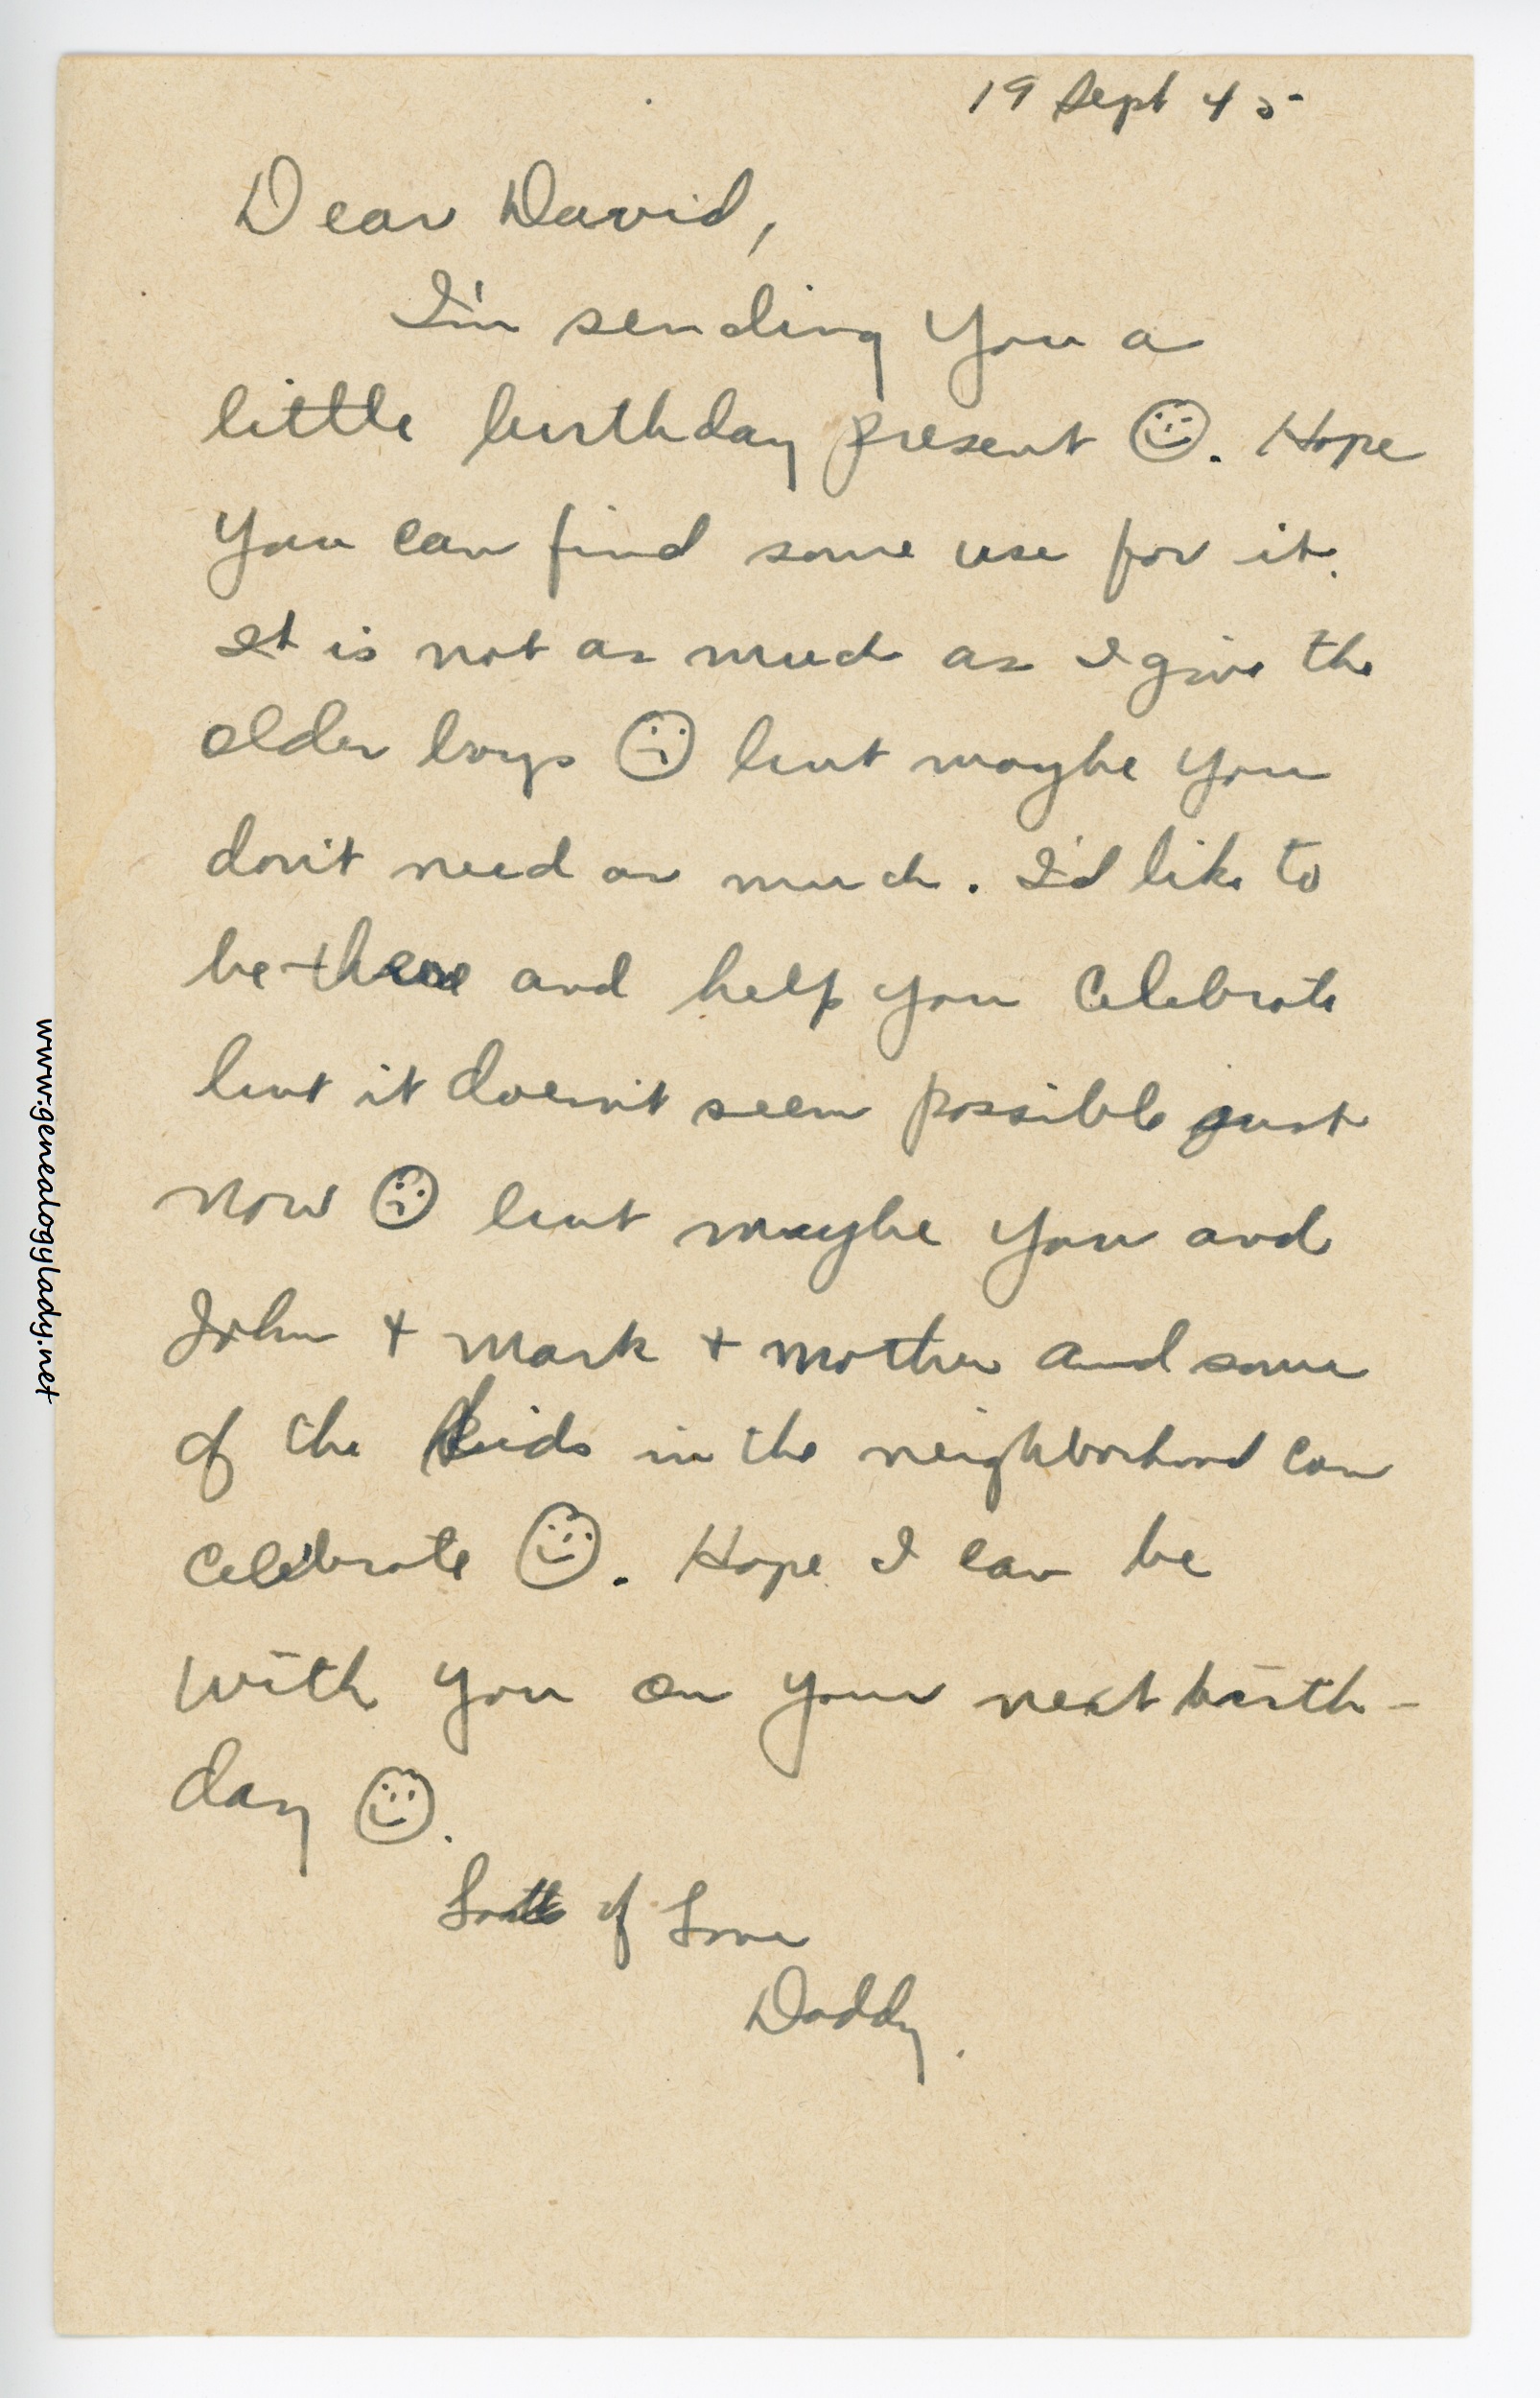 19 Sept 45
Dear David,
I'm sending you a
little birthday present ☺. Hope
you can find some use for it.
It is not as much as I give the
older boys ☹ but maybe you
don't need as much. I'd like to
be there and help you celebrate
but it doesn't seem possible just
now ☹ but maybe you and
John + Mark + mother and some
of the kids in the neighborhood can
celebrate ☺. Hope I can be
with you on your next birth-
day ☺.
Lots of Love
Daddy.
www.genealogylady.net